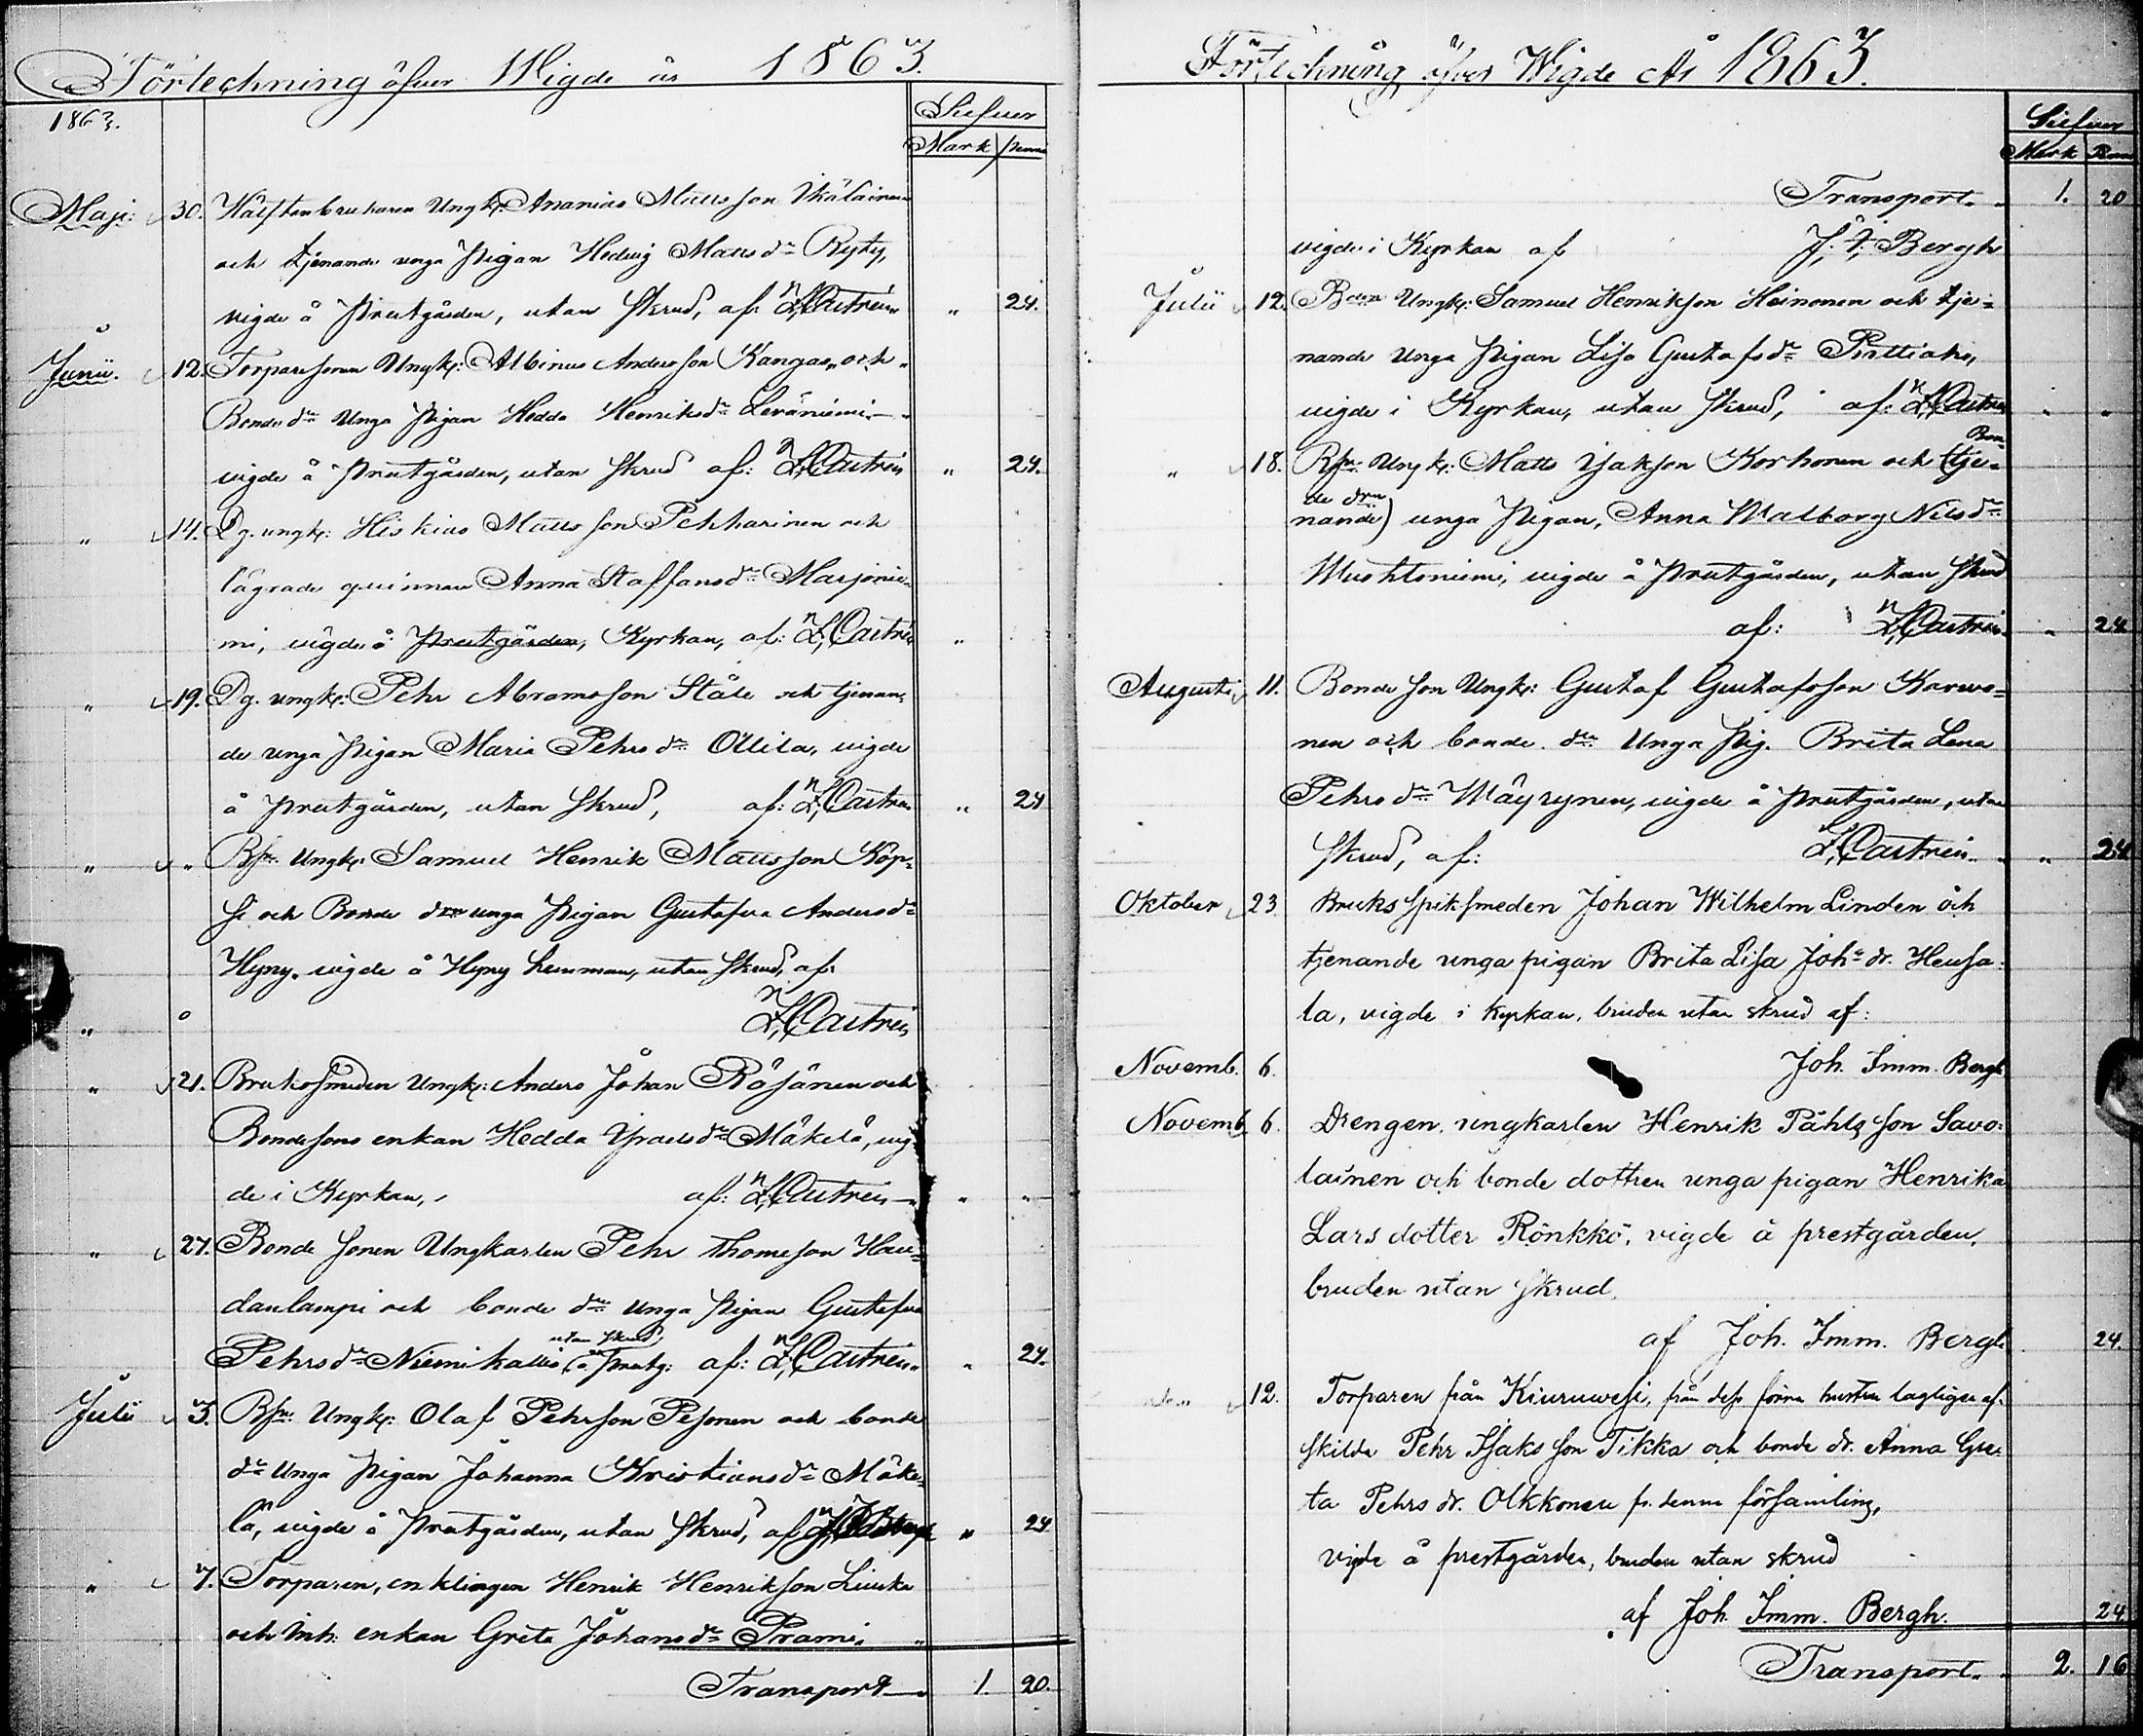 Förtechning öfver Wigde år 1863.
1863.
Silfver
Mark penni
Maji 30. Hälftenbrukaren Ungk: Ananias Mattsson Ikäläinen
och tjenande unga pigan Hedvig Matts dr Ryty,
vigde å Prestgården, utan skrud, af: Z,Castrén " 24.
Junii. 12. Torparesonen Ungk: Albinus Andersson Kangas, och
Bonde dr Unga pigan Hedda Henriksdr Leväniemi
vigde å Prestgården, utan skrud af: Z,Castrén " 24.
" 14. Dg. ungk: Hiskias Mattsson Pekkarinen och
lägrade quinnan Anna Staffansdr Marjonie-
mi, vigde å Prestgården, Kyrkan, af: Z,Castrén "
" 19. Dg. ungk: Pehr Abramsson Ståle och tjenan-
de unga pigan Maria Pehrs dr Ollila, vigde
å prestgården, utan skrud, af: Z,Castrén " 24
" " Bsn Ungk: Samuel Henrik Mattsson Köp-
si och Bonde drn unga pigan Gustafva Andersdr
Hyny, vigde å Hyny hemman, utan skrud, af:
" Z,Castrén
" 21. Bruksmeden Ungk: Anders Johan Räsänen och
Bondesons enkan Hedda Israelsdr Mäkelä, vig-
de i Kyrkan, af: Z,Castrén " "
" 27. Bonde sonen Ungkarlen Pehr Thomeson Hau-
danlampi och bonde dr Unga pigan Gustafva
utan skrud
Pehrsdr Niemikallio, å prestg: af: Z,Castrén " 24.
Julii 3. Bsn: Ungk: Olaf Pehrson Pesonen och bonde
dr Unga pigan Johanna Kristiansdr Mäke-
lä, vigde å Prestgården, utan skrud, af " 24
" 7. Torparen, enklingen Henrik Henrikson Liuska
och Inh: enkan Greta Johansdr Prami,
Transport 1. 20.
Förtechning öfver Wigde År 1863.
Silfver
Mark Penni
Transport. 1. 20
vigde i Kyrkan af J. I. Bergh
Julii 12. Bden Ungk: Samuel Henrikson Heinonen och tje-
nande Unga pigan Lisa Gustafsdr Pirttiaho,
vigde i Kyrkan, utan skrud, af: Z,Castrén " "
Bon-
" 18. Bsn: Ungk: Matts Isakson Korhonen och (tje-
de drn
nande) unga pigan, Anna Walborg Nilsdr
Mustoniemi, vigde å prestgården, utan skrud
af: Z,Castrén " 24
Augusti 11. Bonde son Ungk: Gustaf Gustafsson Karwo-
nen och bonde drn Unga Pig. Brita Lena
Pehrs dr Mäyrynen, vigde å prestgården, utan
skrud, af: Z,Castrén. " 24
Oktober 23 Bruks spiksmeden Johan Wilhelm Linden och
tjenande unga pigan Brita Lisa Johs dr. Heusa-
la, vigde i kyrkan, bruden utan skrud af:
Novemb. 6. Joh. Imm. Bergh
Novemb 6. Drengen, ungkarlen Henrik Påhlsson Savo-
lainen och bonde dottren unga pigan Henrika
Lars dotter Rönkkö, vigde å prestgården,
bruden utan skrud.
af Joh. Imm. Bergh 24.
12. Torparen från Kiuruwesi, från dess förra hustru lagligen af-
skilda Pehr Isaksson Tikka och bonde dr. Anna Gre-
ta Pehrs dr. Olkkonen fr. denna församling,
vigde å prestgården, bruden utan skrud
af Joh. Imm. Bergh. 24
Transport. 2. 16